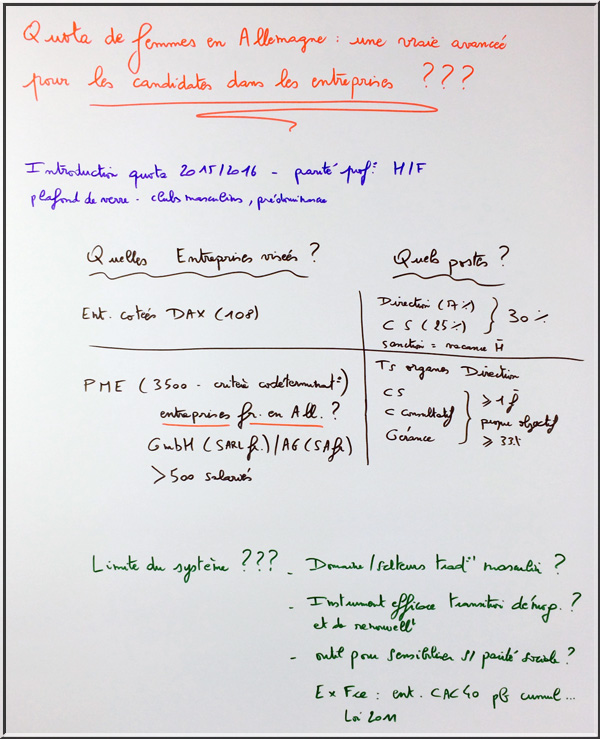 Quota de femmes en Allemagne : une vraie avancée
pour les candidates dans les entreprises ???
Introduction quota 2015/2016 - parité prof.le H/F
plafond de verre - clubs masculins, prédominance
Quelles Entreprises visées ?
Quels postes ?
Ent. cotées DAX (108)
Direction (17%)
CS (25%)
} 30%
sanction = vacance
PME (3500 - critère codéterminat°)
entreprises fr. en All. ?
GmbH (SARL fr.)/AG (SA fr)
>500 salariés
Ts organes Direction
CS
C Consultatif
Gérance
} ≥ 1 f
propre objectif
≥ 33%
Limite du système ???
- Domaine/secteurs trad.lt masculin ?
- Instrument efficace transition démog. ?
et de renouvellt
- outil pour sensibiliser s/ parité sociale ?
Ex Fce : ent. CAC40 pb cumul...
Loi 2011